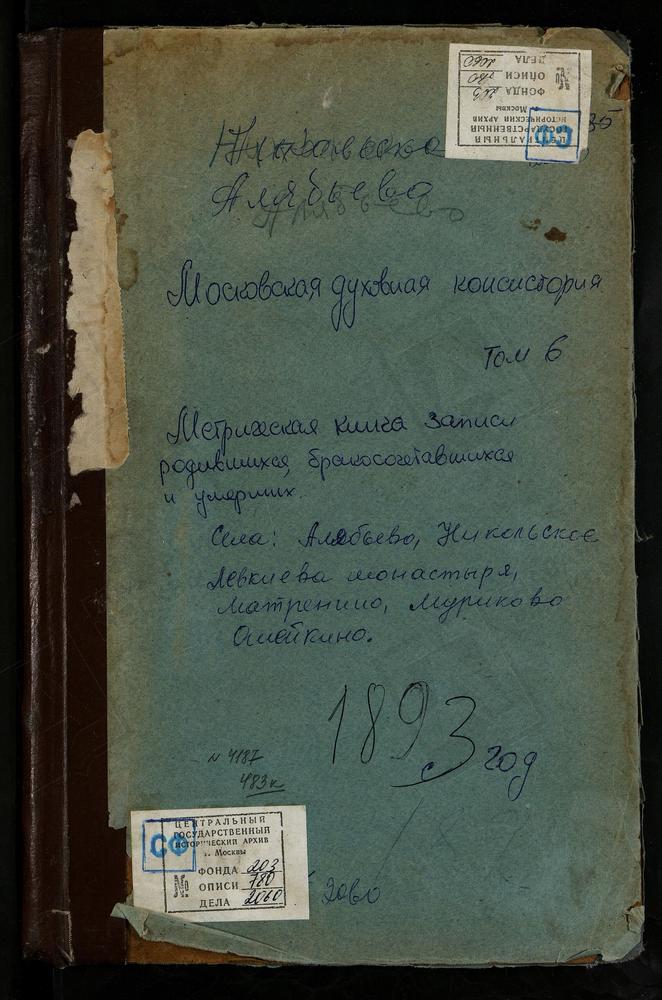 ЦЕНТРАЛЬНЫЙ
ГОСУДАРСТВЕННЫЙ
ИСТОРИЧЕСКИЙ АРХИВ
г. Москвы
№ ФОНДА 203
ОПИСИ 780
ДЕЛА 2060
СФ
Алябьево
Алябьево
Московская духовная консистория
Том 6
Метрическая книга записи
родившихся, бракосочетавшихся
и умерших.
Села: Алябьево, Никольское
Левкиева монастыря,
Матренино, Муриково
Ошейкино.
1893 год
N 4187
483к
ЦЕНТРАЛЬНЫЙ
ГОСУДАРСТВЕННЫЙ
ИСТОРИЧЕСКИЙ АРХИВ
г. Москвы
№ ФОНДА 203
ОПИСИ 780
ДЕЛА 2060
СФ
2060